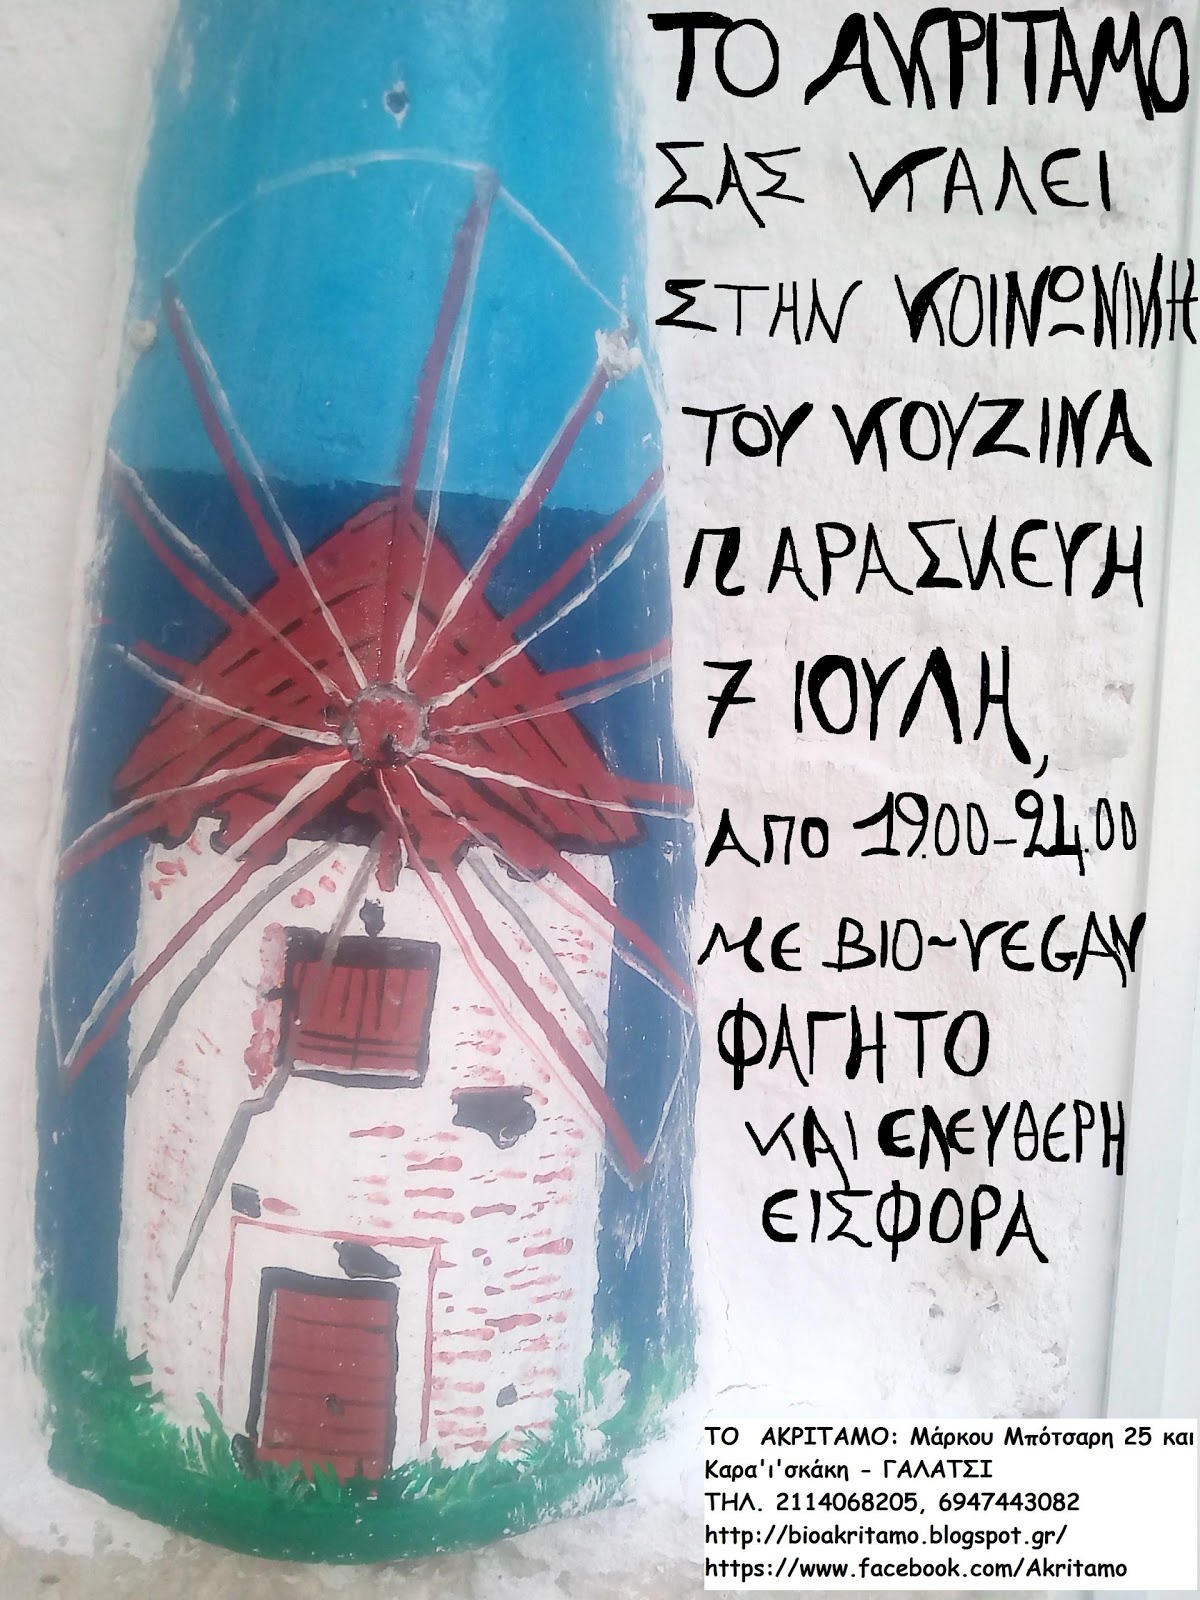 ΤΟ ΑΚΡΙΤΑΜΟ
ΣΑΣ ΚΑΛΕΙ
ΣΤΗΝ ΚΟΙΝΩΝΙΚΗ
ΤΟΥ ΚΟΥΖΙΝΑ
ΠΑΡΑΣΚΕΥΗ
7 ΙΟΥΛΗ,
ΑΠΟ 19.00-24.00
ΜΕ BIO-VEGAN
ΦΑΓΗΤΟ
ΚΑΙ ΕΛΕΥΘΕΡΗ
ΕΙΣΦΟΡΑ
ΤΟ ΑΚΡΙΤΑΜΟ: Μάρκου Μπότσαρη 25 και
Καρα'ι'σκάκη - ΓΑΛΑΤΣΙ
ΤΗΛ. 2114068205, 6947443082
http://bioakritamo.blogspot.gr/
https://www.facebook.com/Akritamo